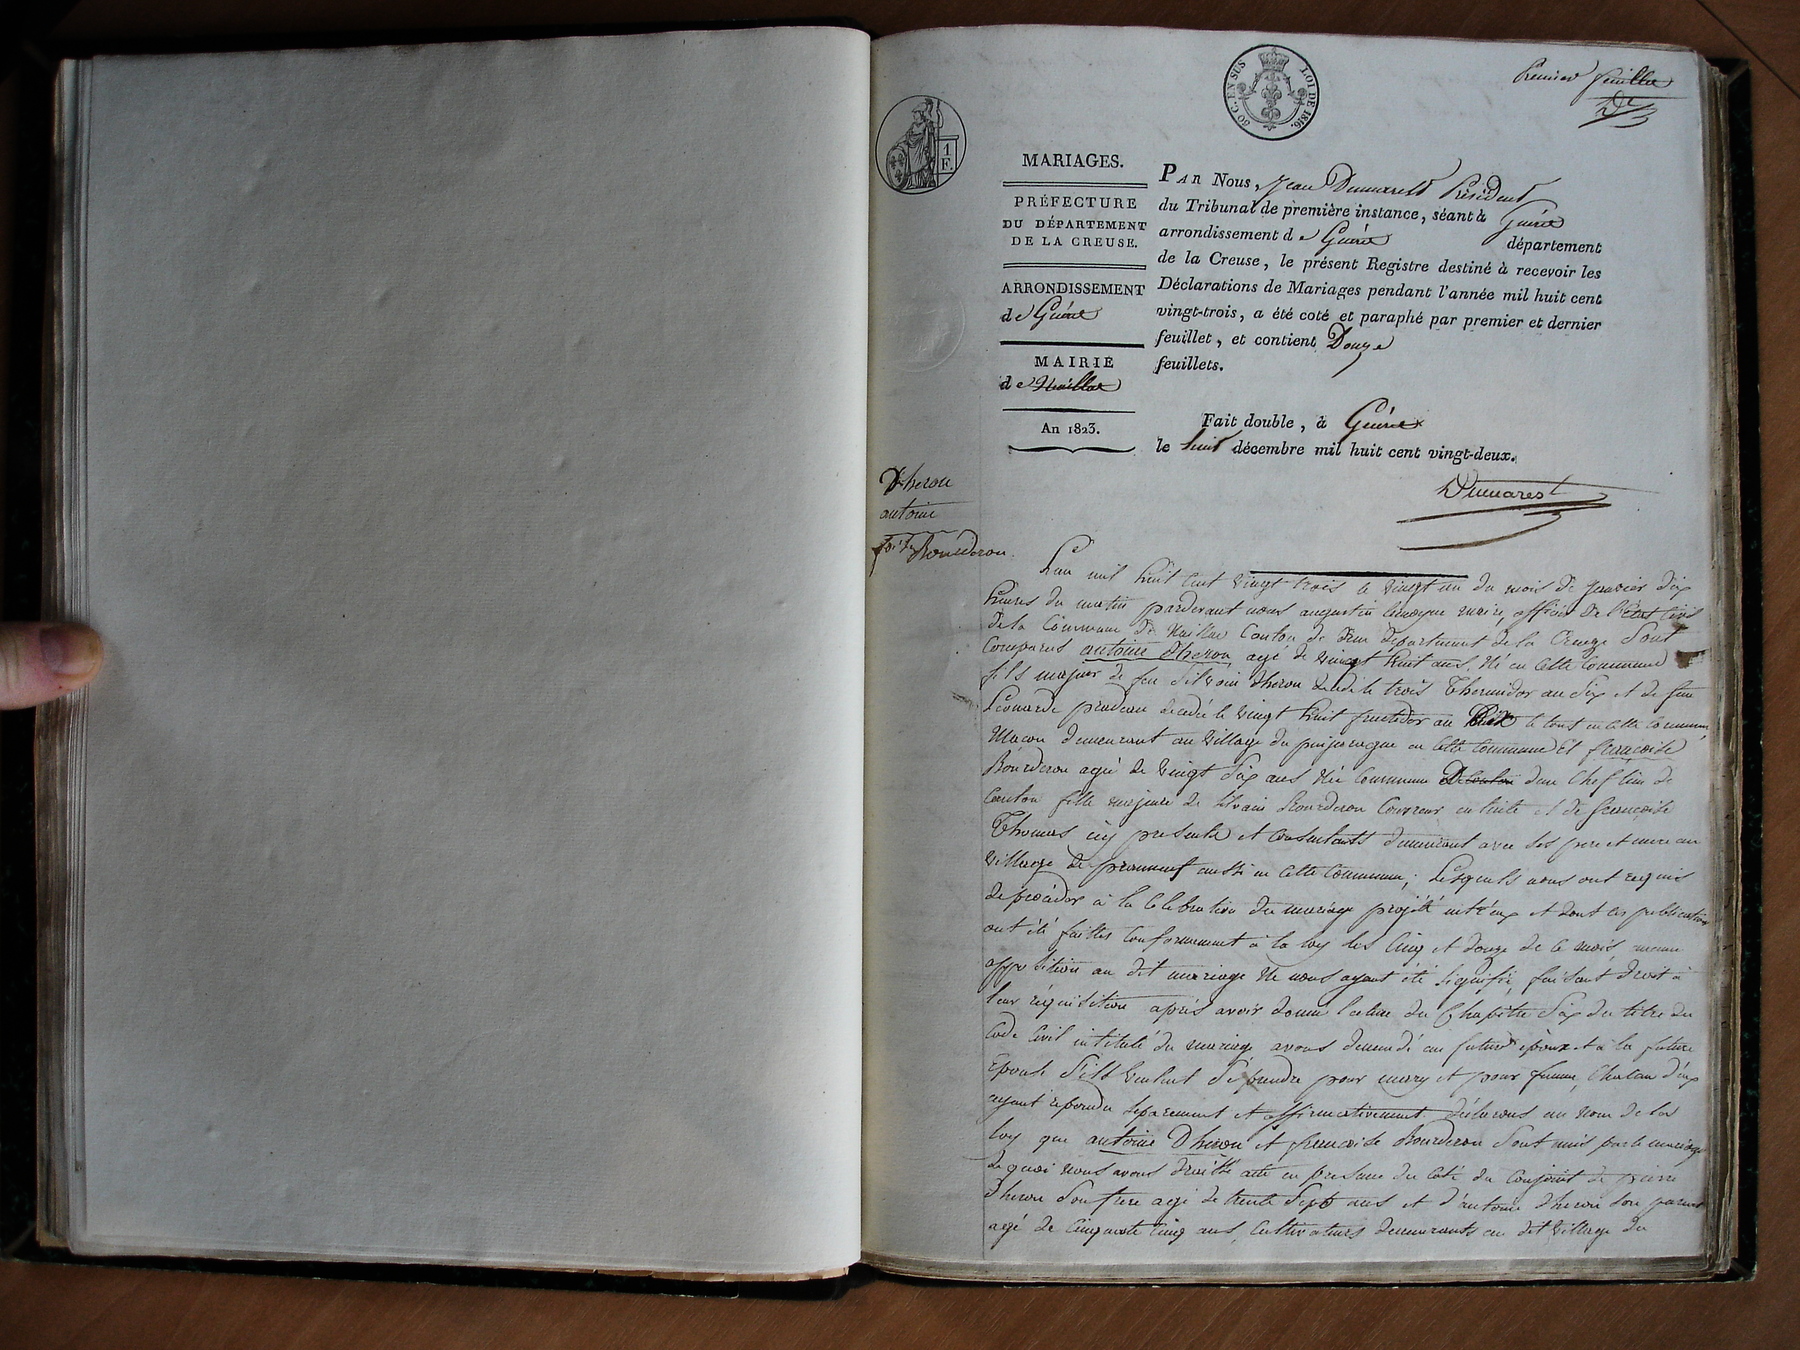 Premier feuillet
Dt
50 C. EN SUS LOI DE 1816.
1 F.
MARIAGES.
PRÉFECTURE
DU DÉPARTEMENT
DE LA CREUSE.
ARRONDISSEMENT
de Guéret
MAIRIE
de Naillac
An 1823.
PAR Nous, Jean Dumarest Président
du Tribunal de première instance, séant à Guéret
arrondissement de Guéret département
de la Creuse, le présent Registre destiné à recevoir les
Déclarations de Mariages pendant l'année mil huit cent
vingt-trois, a été coté et paraphé par premier et dernier
feuillet, et contient Douze
feuillets.
Fait double, à Guéret
le huit décembre mil huit cent vingt-deux.
Dumarest
Dheron
antoine
Bourderon
L'an mil huit cent vingt trois le vingt un du mois de janvier dix
heures du matin pardevant nous augustin maire, officier de l'état civil
de la Commune de Naillac Canton de dun département de la Creuze Sont
Comparus antoine Dheron, agé de vingt huit ans, Né en cette Commune
fils majeur de feu Silvain Dheron décédé le trois Thermidor an Six et de feue
Léonarde pradeau décédée le vingt huit fructidor an le tout en cette Commune
Macon demeurant au village du en Cette Commune Et françoise
Bourderon agée de vingt Six ans Née Commune De dun Chef lieu de
Canton fille majeure de Silvain Bourderon Couvreur en tuile et de françoise
Thomas icy presents et Consentants demeurant avec ses pere et mere au
village de aussi en Cette Commune; Lesquels nous ont requis
de procéder à la Celebration du mariage projeté entr'eux et dont les publications
ont été faittes Conformement à la loy les Cinq et douze de ce mois aucune
opposition au dit mariage Ne nous ayant été Signifié, faisant droit à
leur réquisition après avoir donné lecture du Chapitre Six du titre du
Code Civil intitulé du mariage avons demandé au futur époux et à la future
Epouse S'ils veulent Se prendre pour mary et pour femme, Chacun d'eux
ayant repondu Séparement et affirmativement. déclarons au nom de la
loy que antoine Dheron et françoise Bourderon Sont unis par le mariage
de quoi nous avons dressé acte en presence du Coté du Conjoint de pierre
Dheron Son frere agé de trente Sept ans et d'antoine dheron Son parent
agé de Cinquante Cinq ans, Cultivateurs demeurants au dit village du